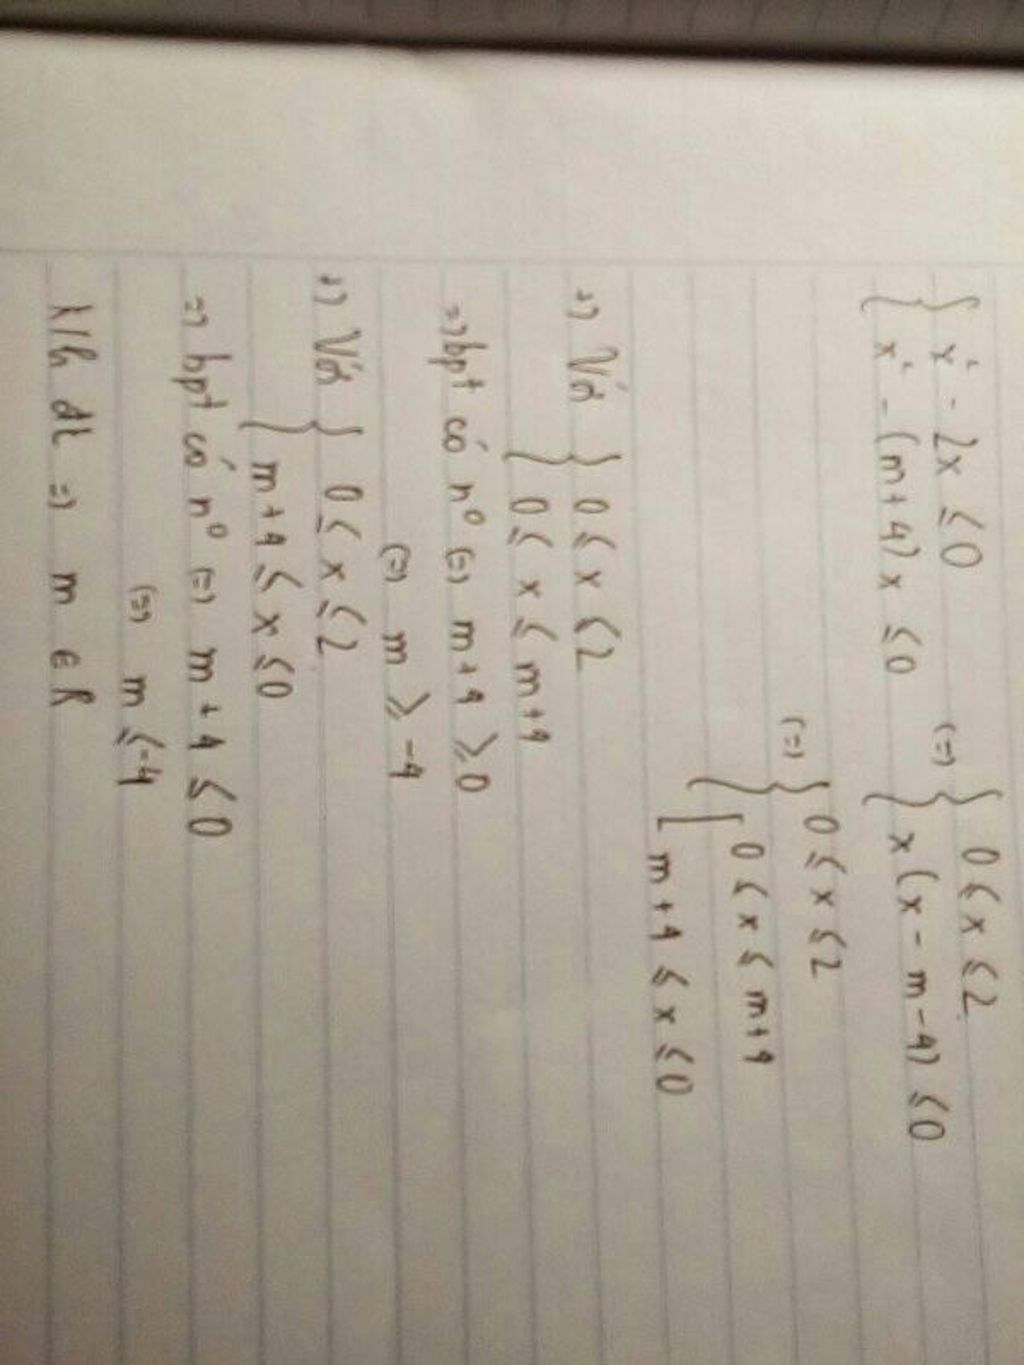 { x² - 2x ≤ 0 (=) { 0 ≤ x ≤ 2
{ x² - (m+4)x ≤ 0 { x(x-m-4) ≤ 0
(=) { 0 ≤ x ≤ 2
{ [ 0 ≤ x ≤ m+4
[ m+4 ≤ x ≤ 0
+) Với { 0 ≤ x ≤ 2
{ 0 ≤ x ≤ m+4
=) bpt có nº (=) m+4 ≥ 0
(=) m ≥ -4
+) Với { 0 ≤ x ≤ 2
{ m+4 ≤ x ≤ 0
=) bpt có nº (=) m+4 ≤ 0
(=) m ≤ -4
k/h đk =) m ∈ R